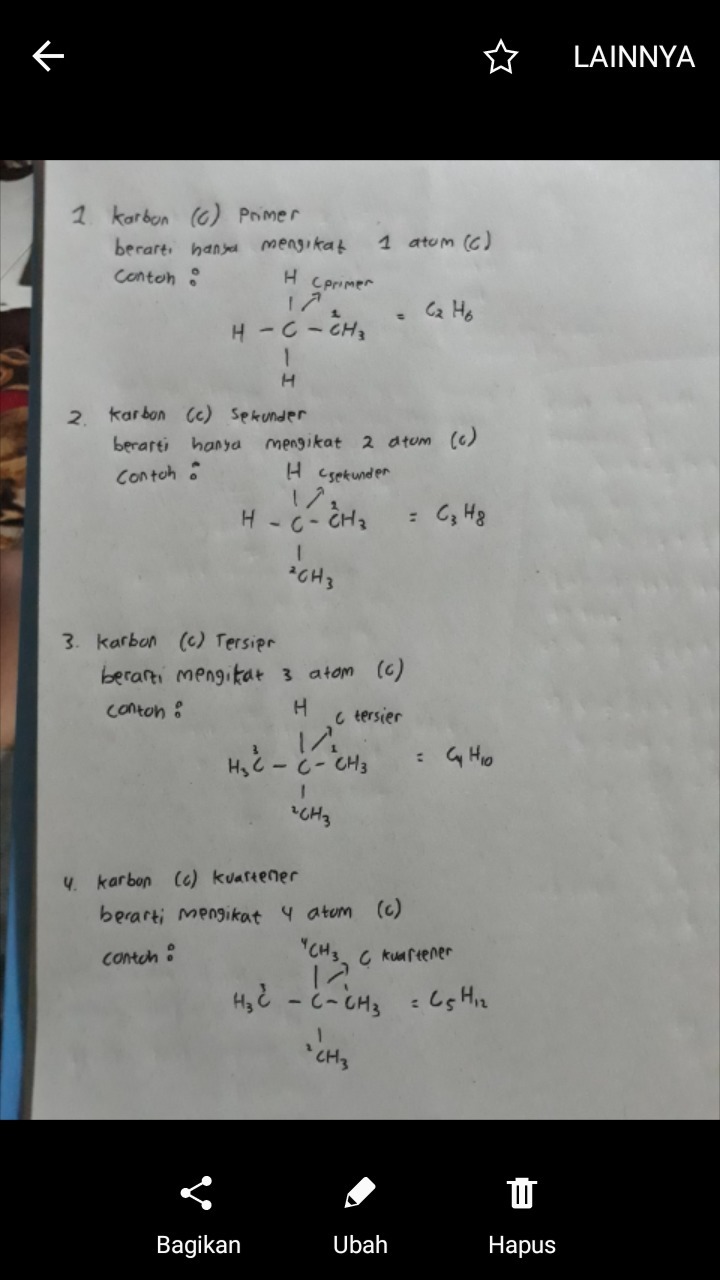 LAINNYA
1. karbon (C) Primer
berarti hanya mengikat 1 atom (C)
Contoh :
H C primer
H - C - ¹CH₃ = C₂H₆
H
2. karbon (C) Sekunder
berarti hanya mengikat 2 atom (C)
Contoh :
H C sekunder
H - C - ¹CH₃ = C₃H₈
²CH₃
3. karbon (C) Tersier
berarti mengikat 3 atom (C)
contoh :
H C tersier
H₃³C - C - ¹CH₃ = C₄H₁₀
²CH₃
4. karbon (C) kuartener
berarti mengikat 4 atom (C)
contoh :
⁴CH₃ C kuartener
H₃³C - C - ¹CH₃ = C₅H₁₂
²CH₃
Bagikan Ubah Hapus